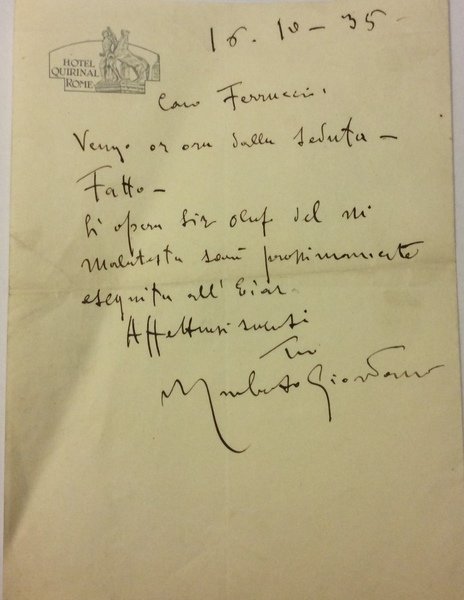 HOTEL
QUIRINAL
ROME
16. 10 - 35 -
Caro Ferruccio,
Vengo or ora dalla seduta -
Fatto -
L'opera Sir Oluf del M
Malatesta sarà prossimamente
eseguita all'Eiar.
Affettuosi saluti
Tuo
Umberto Giordano